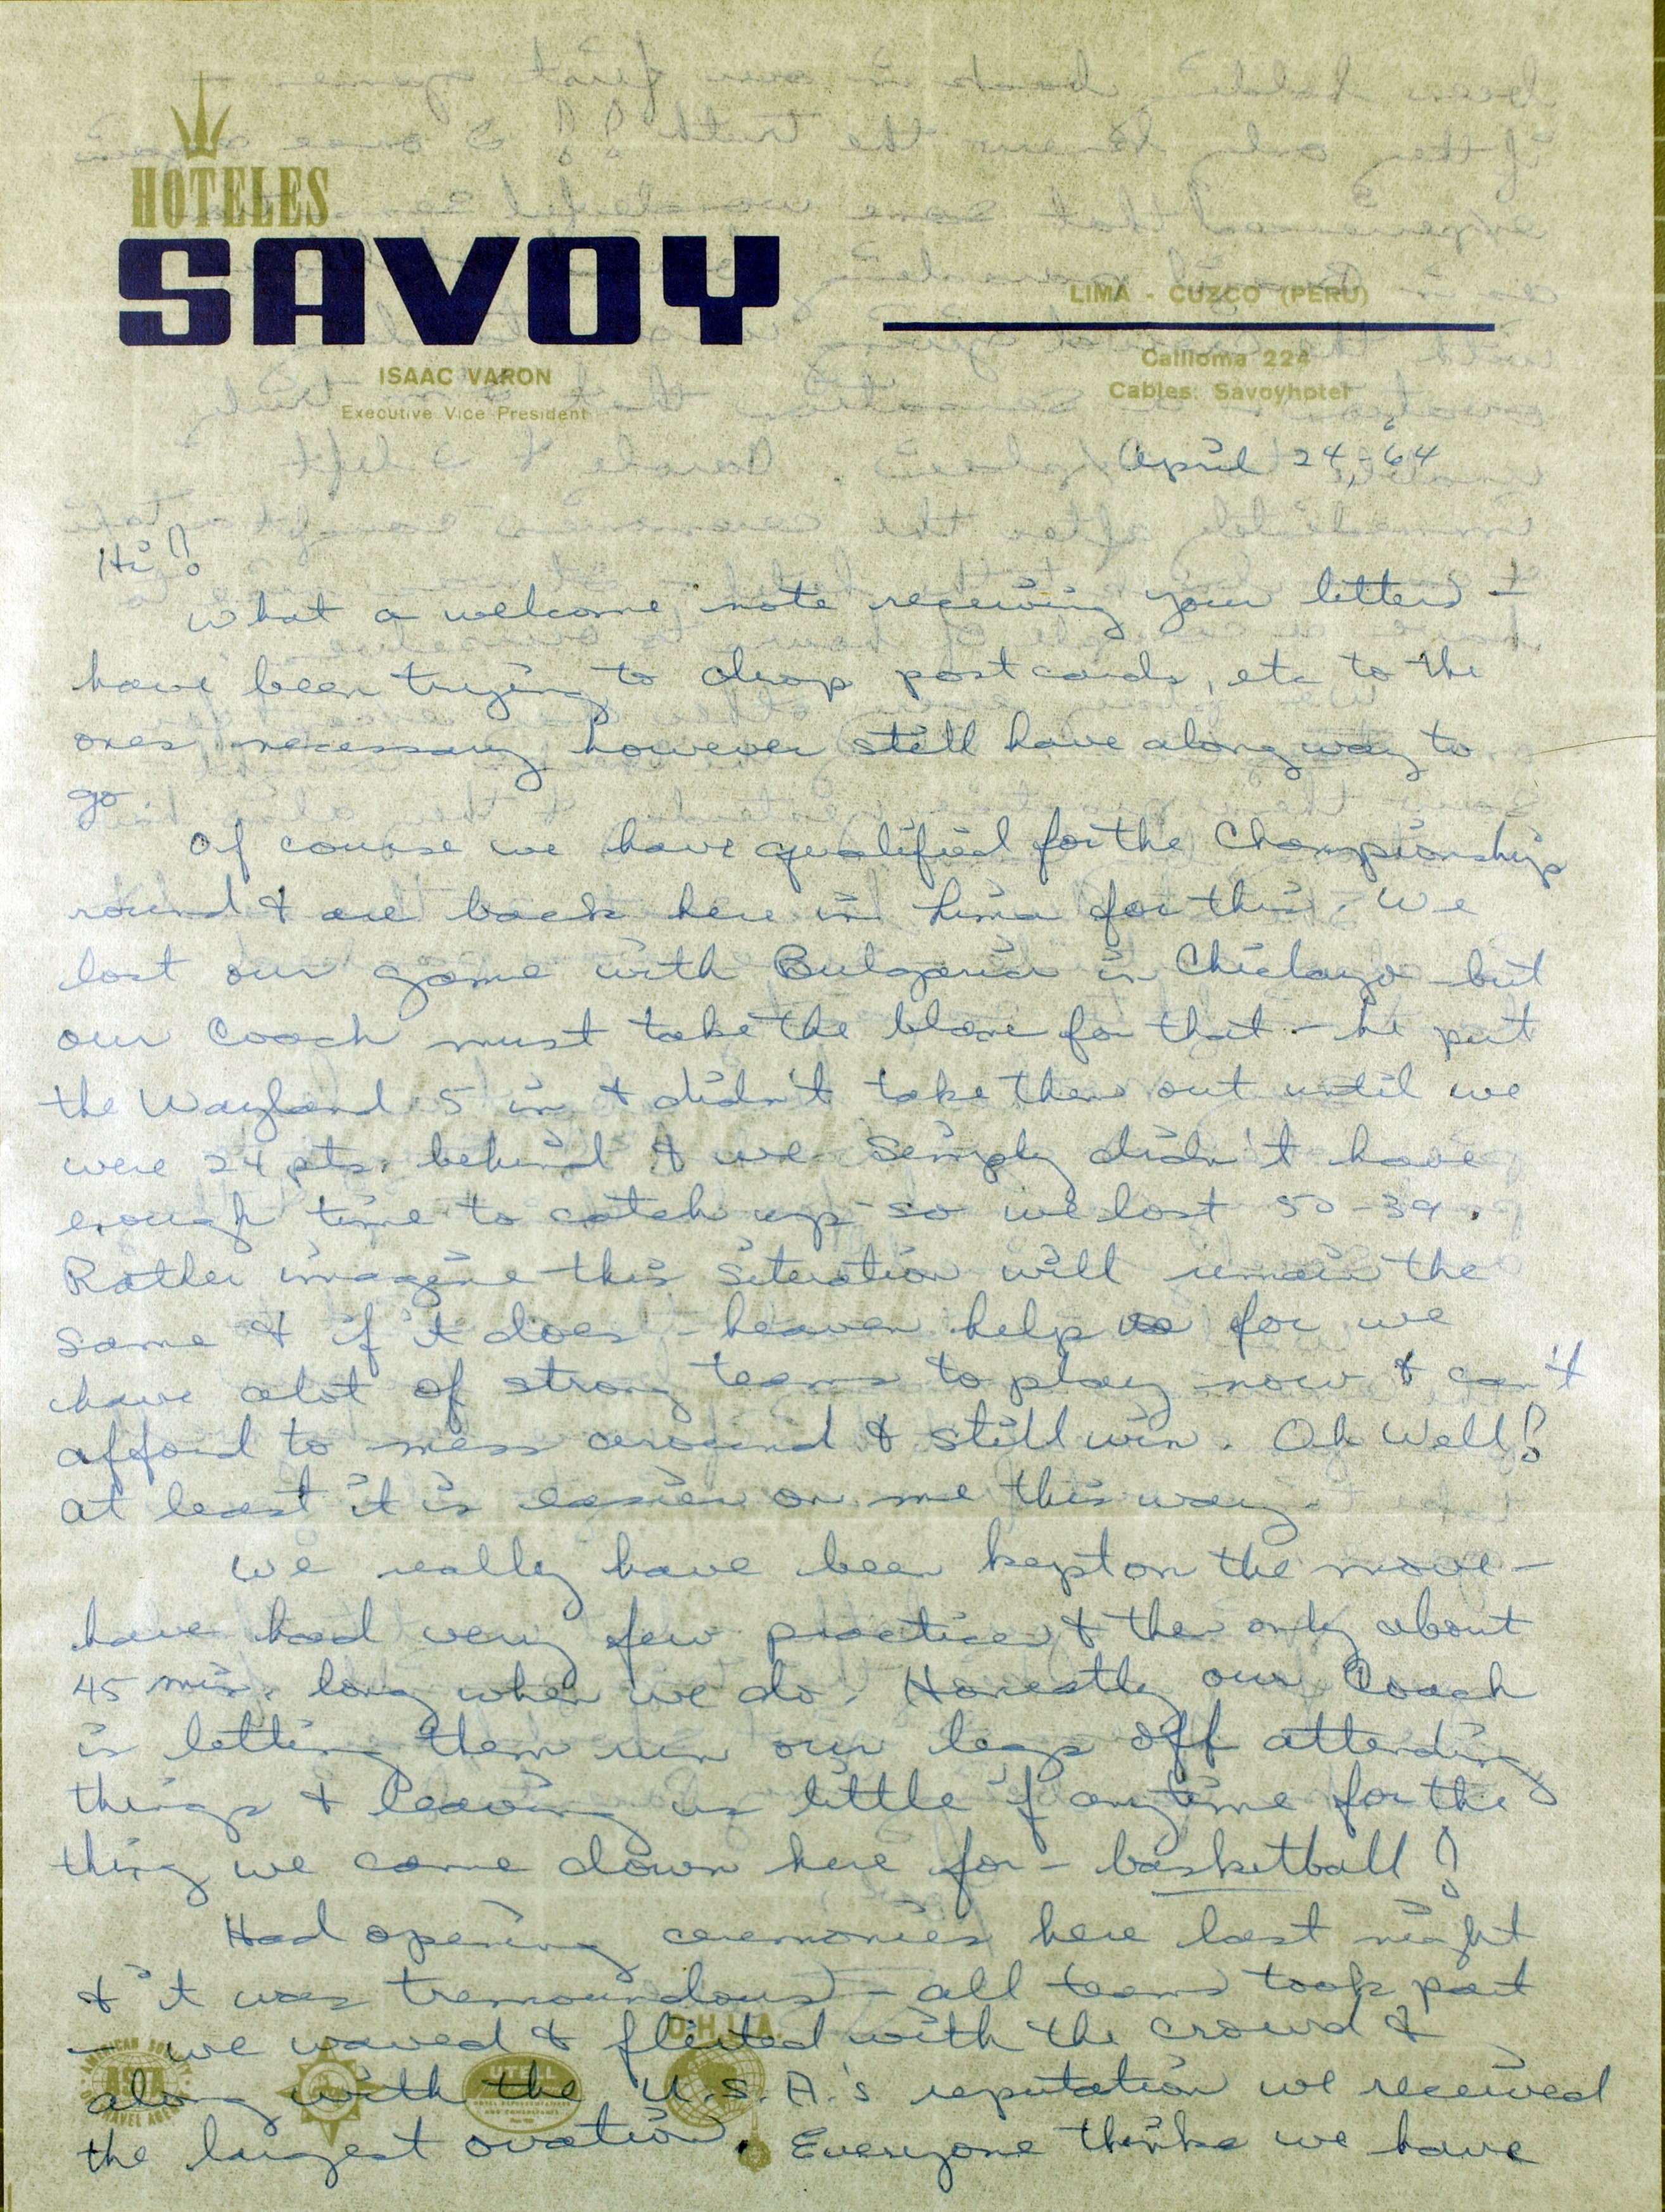 HOTELES
SAVOY
LIMA - CUZCO (PERU)
ISAAC VARON
Executive Vice President
Caylloma 224
Cables: Savoyhotel
April 24, '64
Hi!
What a welcome note receiving your letters I
have been trying to drop post cards, etc to the
ones necessary however still have along way to
go.
Of course we have qualified for the Championship
round & are back here in Lima for this. We
lost our game with Bulgaria in Chiclayo but
our Coach must take the blame for that - he put
the Wayland 5 in & didn't take them out until we
were 24 pts. behind & we simply didn't have
enough time to catch up so we lost 50-39.
Rather imagine this siteration will remain the
same & if it does - heaven help us for we
have alot of strong teams to play now & can't
afford to mess around & still win. Oh Well!
At least it is easier on me this way.
We really have been kept on the move -
have had very few practices & then only about
45 min. long when we do. Honestly our Coach
is letting them run our legs off attending
things & leaving us little if anytime for the
thing we came down here for - basketball!
Had opening ceremonies here last night
& it was tremoundous - all teams took part
- we waved & flirted with the crowd &
along with the U.S.A.'s reputation we received
the largest ovation. Everyone thinks we have
AMERICAN SOCIETY
ASTA
TRAVEL AGENTS
UTELL
HOTEL REPRESENTATIVES